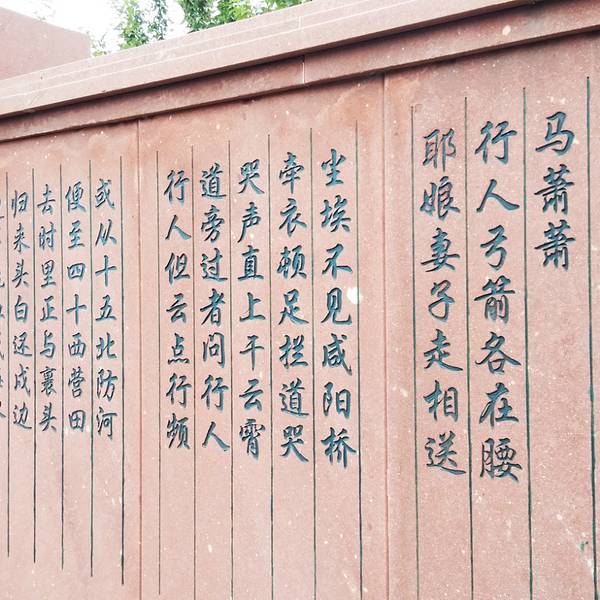 马萧萧
行人弓箭各在腰
耶娘妻子走相送
尘埃不见咸阳桥
牵衣顿足拦道哭
哭声直上干云霄
道旁过者问行人
行人但云点行频
或从十五北防河
便至四十西营田
去时里正与裹头
归来头白还戍边